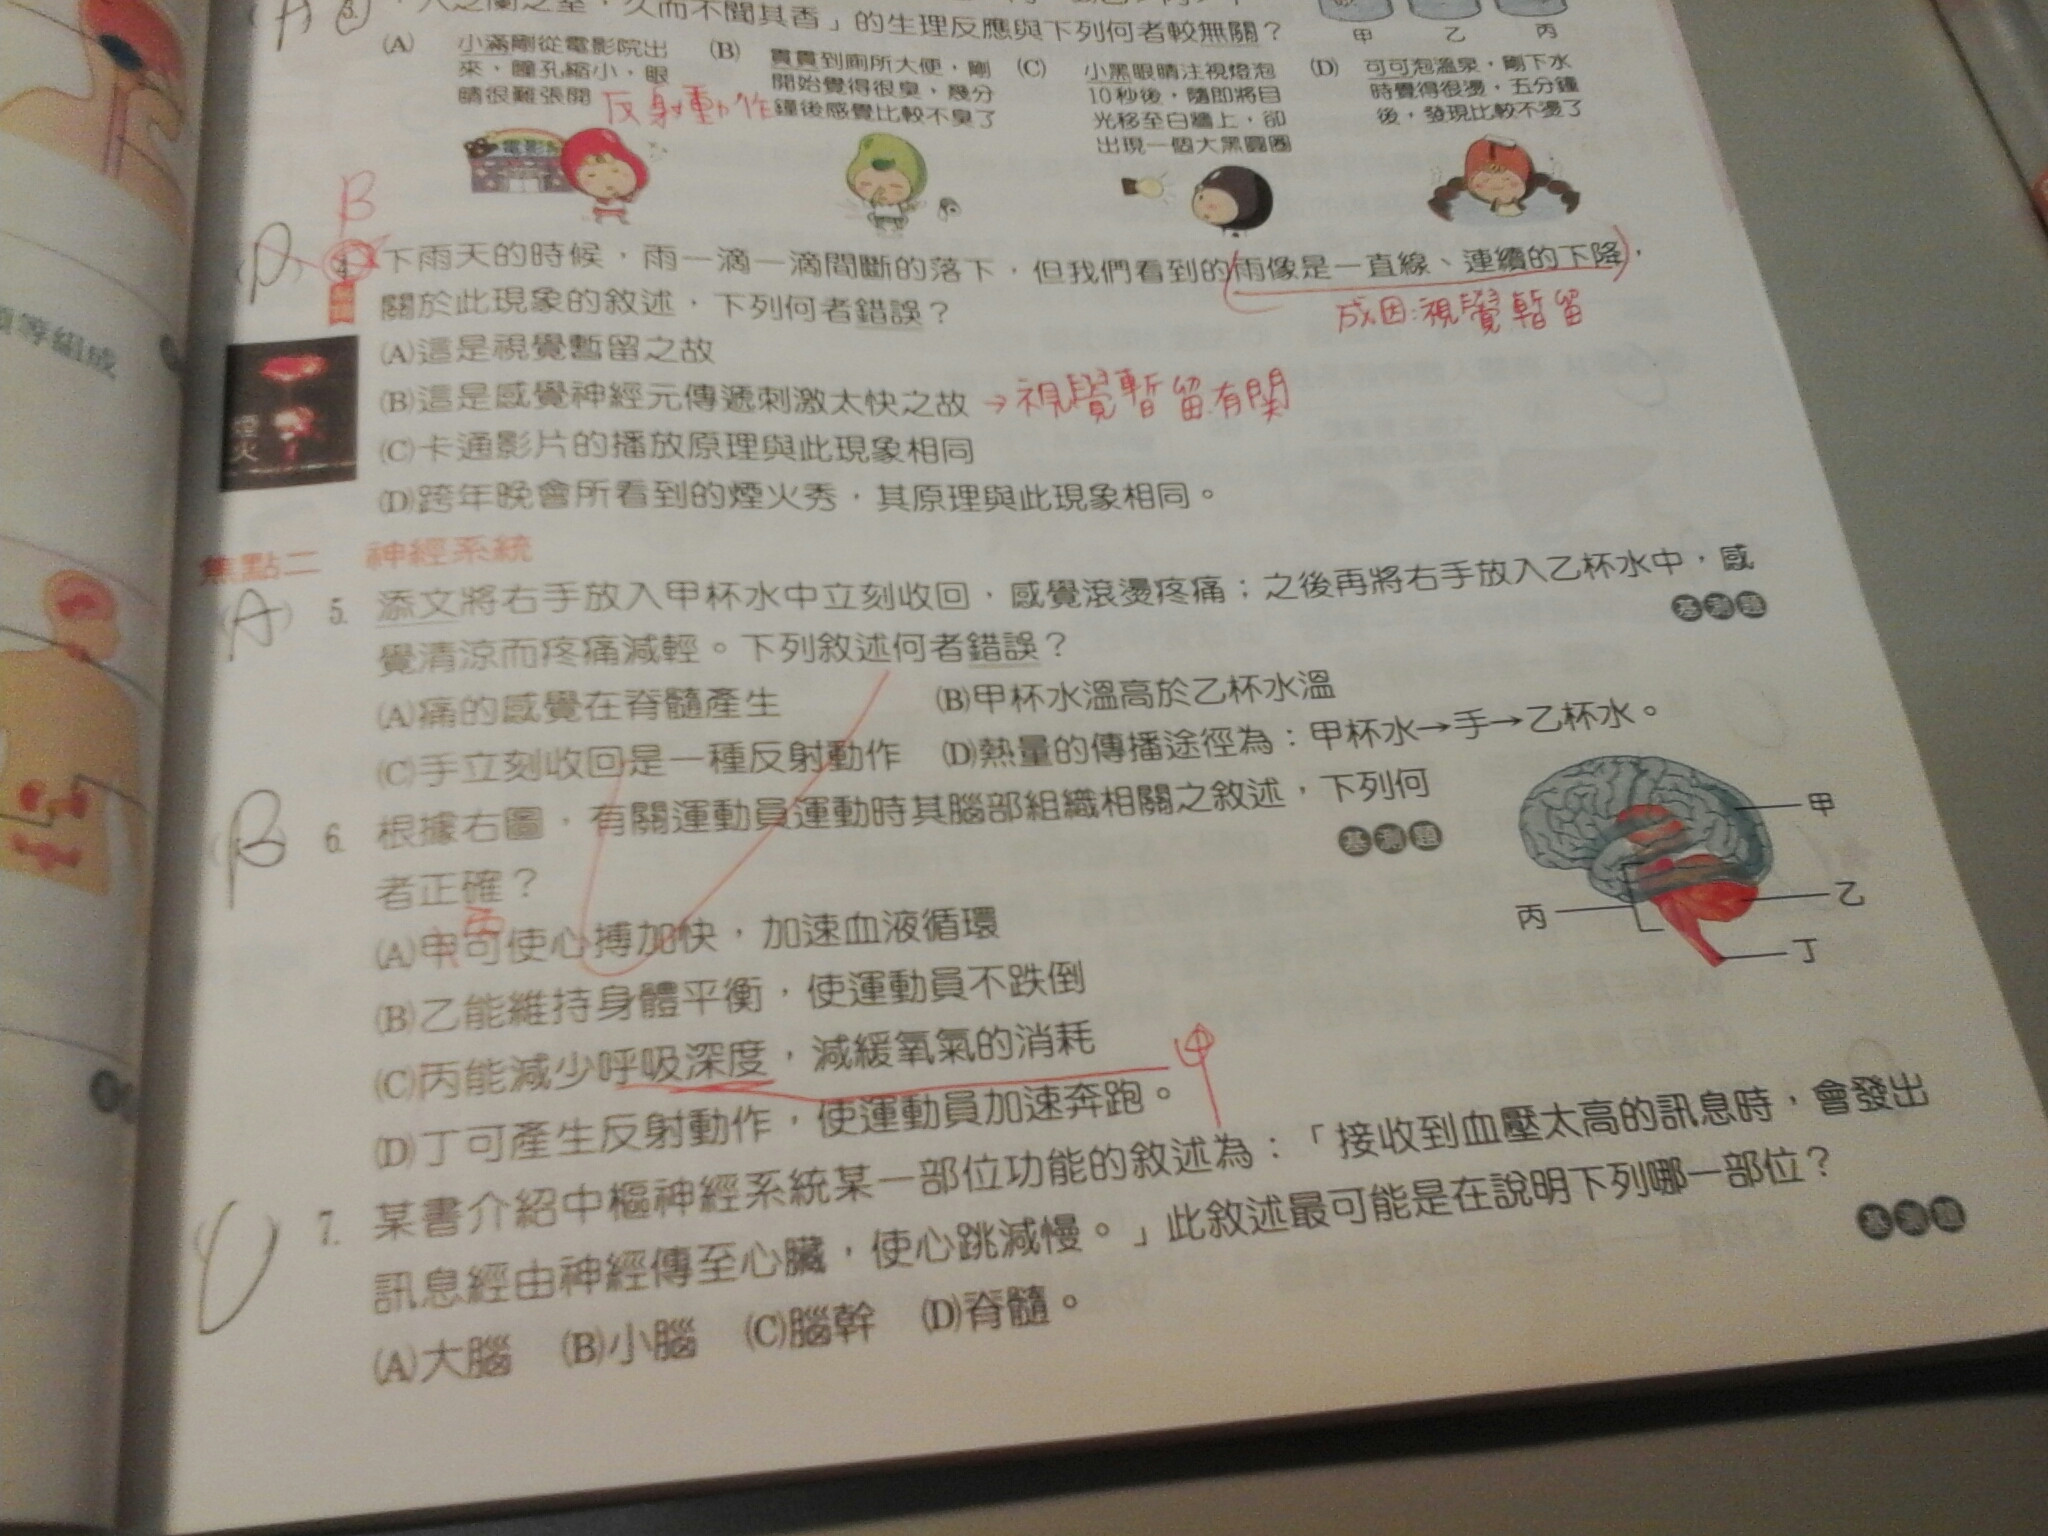 A 3. 「入芝蘭之室，久而不聞其香」的生理反應與下列何者較無關？
甲 乙 丙
(A) 小滿剛從電影院出來，瞳孔縮小，眼睛很難張開
反射動作
(B) 貫貫到廁所大便，剛開始覺得很臭，幾分鐘後感覺比較不臭了
(C) 小黑眼睛注視燈泡10秒後，隨即將目光移至白牆上，卻出現一個大黑圓圈
(D) 可可泡溫泉，剛下水時覺得很燙，五分鐘後，發現比較不燙了
電影
B
(D) 4. 下雨天的時候，雨一滴一滴間斷的落下，但我們看到的雨像是一直線、連續的下降，
關於此現象的敘述，下列何者錯誤？
成因:視覺暫留
(A)這是視覺暫留之故
(B)這是感覺神經元傳遞刺激太快之故 →視覺暫留有関
(C)卡通影片的播放原理與此現象相同
(D)跨年晚會所看到的煙火秀，其原理與此現象相同。
煙火
等組成
焦點二 神經系統
(A) 5. 添文將右手放入甲杯水中立刻收回，感覺滾燙疼痛；之後再將右手放入乙杯水中，感
覺清涼而疼痛減輕。下列敘述何者錯誤？ 基測題
(A)痛的感覺在脊髓產生 (B)甲杯水溫高於乙杯水溫
(C)手立刻收回是一種反射動作 (D)熱量的傳播途徑為：甲杯水→手→乙杯水。
(B) 6. 根據右圖，有關運動員運動時其腦部組織相關之敘述，下列何
者正確？ 基測題
甲
乙
丙
丁
丙
(A)甲可使心搏加快，加速血液循環
(B)乙能維持身體平衡，使運動員不跌倒
(C)丙能減少呼吸深度，減緩氧氣的消耗
甲
(D)丁可產生反射動作，使運動員加速奔跑。
(C) 7. 某書介紹中樞神經系統某一部位功能的敘述為：「接收到血壓太高的訊息時，會發出
訊息經由神經傳至心臟，使心跳減慢。」此敘述最可能是在說明下列哪一部位？
基測題
(A)大腦 (B)小腦 (C)腦幹 (D)脊髓。